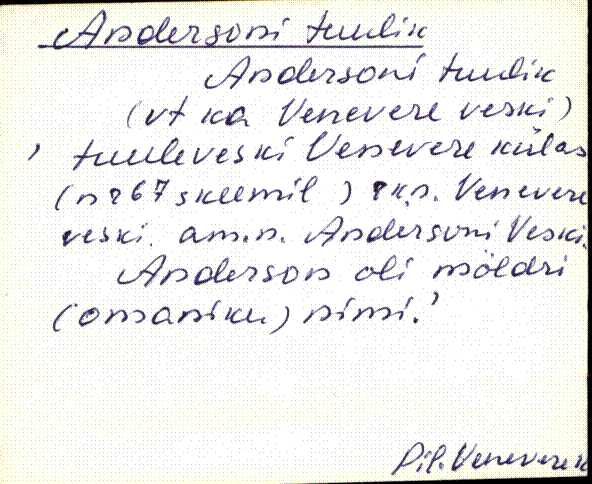 Andersoni tuulik
Andersoni tuulik
(vt ka Venevere veski)
' tuuleveski Venevere külas
(nr 67 skeemil) rk.n. Venevere
veski. am.n. Andersoni Veski.
Anderson oli möldri
(omaniku) nimi.'
Pil. Venevere k